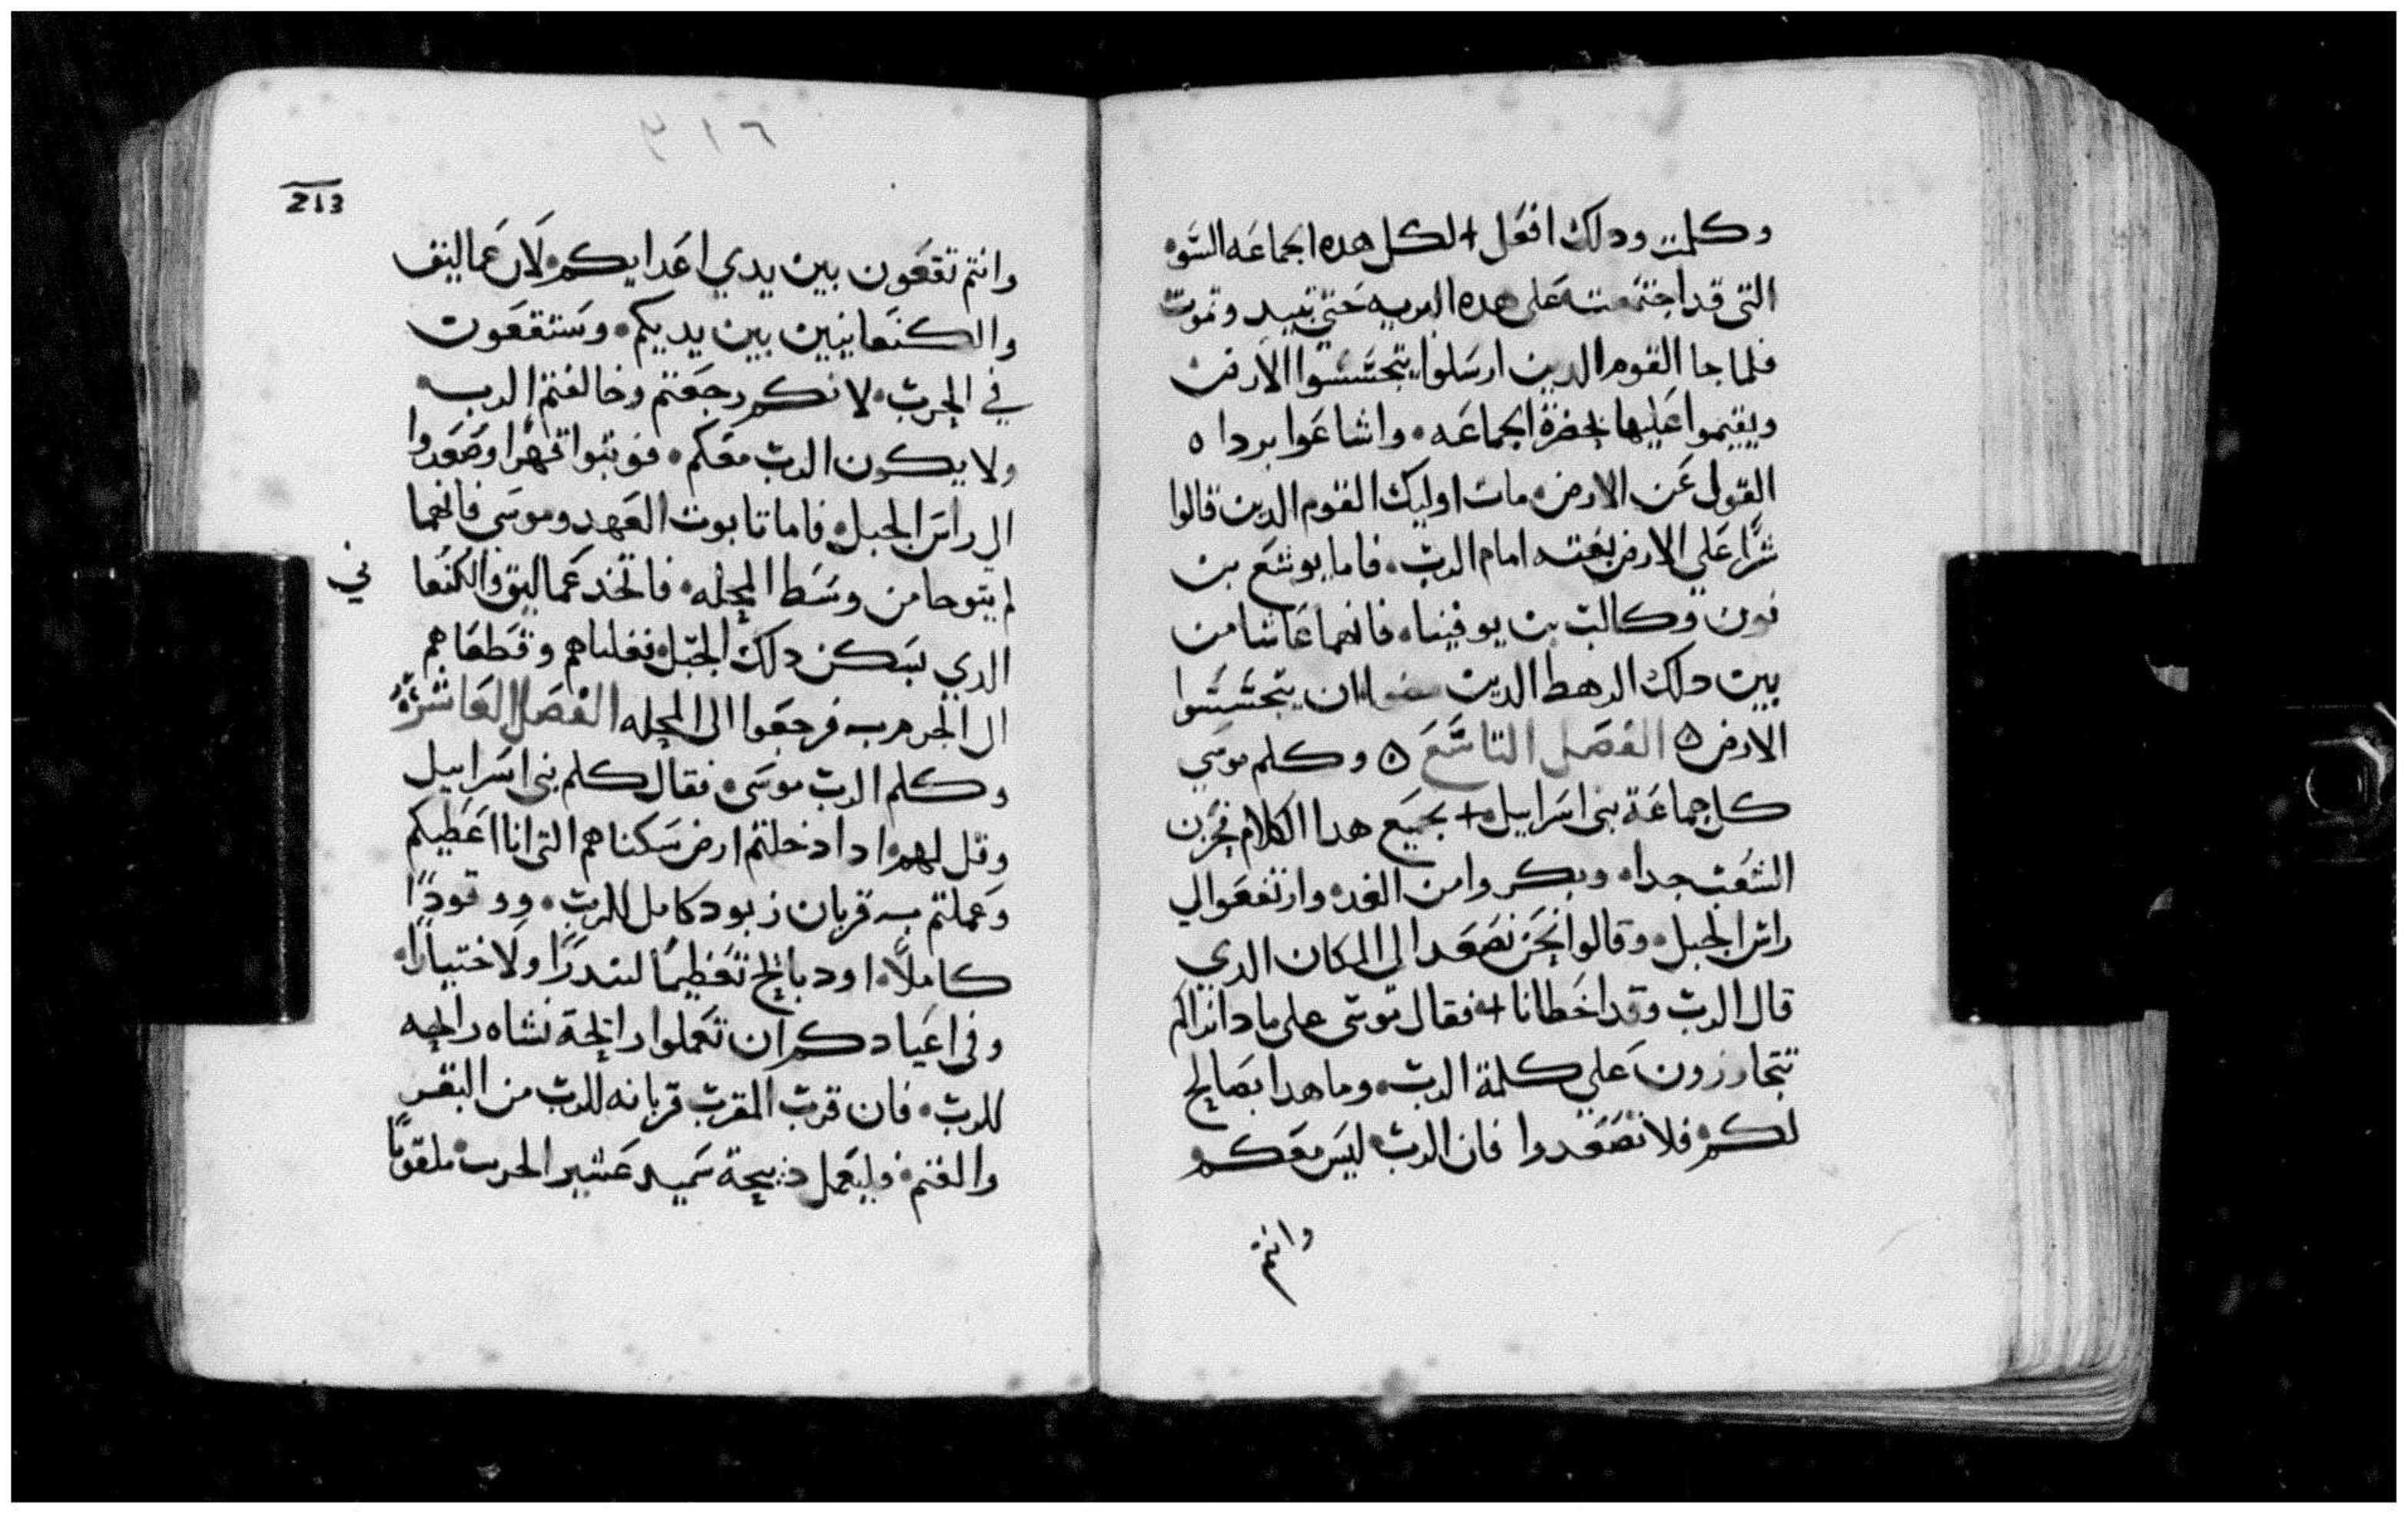 وكلمت ودلك افعل + لكل هده الجماعه السوه
التي قد اجتمعت على هده البريه حتي تبيد وتموت
فلما جا القوم الدين ارسلوا يتجسسوا الارض
ويقيموا عليها بحضرة الجماعه • واشاعوا بردا ه
القول عن الارض • مات اوليك القوم الدين قالوا
شرًا علي الارض بغته امام الرب • فاما يوشع بن
نون وكالب بن يوفينا • فانهما عاشا من
بين دلك الرهط الدين ان يتجسسوا
الارض ه الفصل التاسع ه وكلم موسي
كل جماعة بني اسراييل + بجميع هدا الكلام فحزن
الشعب جدا • وبكروا من الغد • وارتفعوا الي
راس الجبل • وقالوا نحن نصعد الى المكان الدي
قال الرب وقد اخطانا + فقال موسى على مادا اراكم
تتجاوزون علي كلمة الرب • وما هدا بصالح
لكم • فلا تصعدوا فان الرب ليس معكم •
وانتم
٢١٦
213
وانتم تقعون بين يدي اعدايكم • لان عماليق
والكنعانيين بين يديكم • وستقعون
في الحرب • لانكم رجعتم وخالفتم الرب •
ولا يكون الرب معكم • فوثبوا قهرا وصعدوا
الي راس الجبل • فاما تابوت العهد وموسى فانهما
لم يتوحا من وسط المحله • فاتخد عماليق والكنعا
ني
الدي يسكن دلك الجبل فغلباهم وقطعاهم
الى الحرمرب فرجعوا الى المحله الفصل العاشر
وكلم الرب موسى • فقال كلم بني اسراييل
وقل لهم • ادا دخلتم ارض سكناهم التي انا اعطيكم
وعملتم به قربان زبود كامل للرب • ووقودًا
كاملًا • او دبايح تعظيمًا لندرًا ولاختيارًا •
وفي اعيادكم ان تعملوا رايحة نشاه رايحه
للرب • فان قرب المقرب قربانه للرب من البقر
والغنم • فليعمل ذبيحة سميد عشير الحرب • ملقوتًا